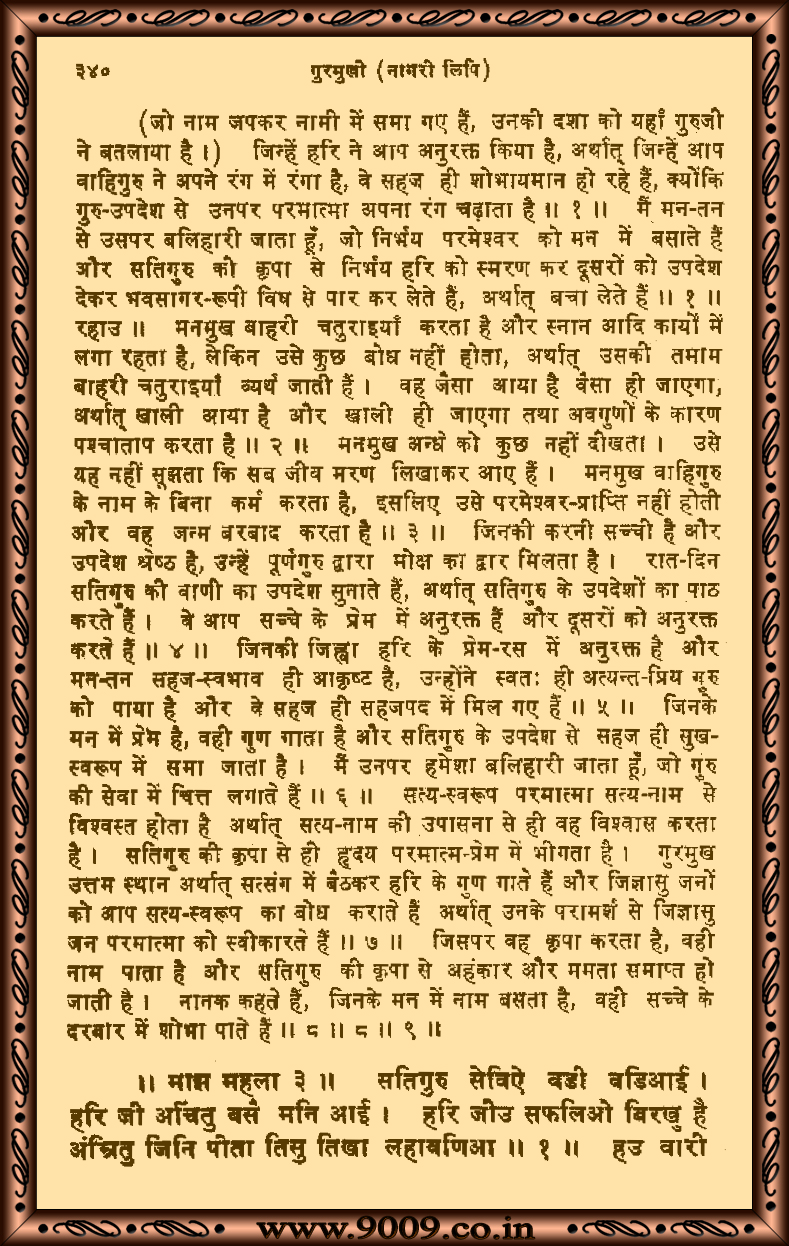 ३४० गुरमुखी (नागरी लिपि)
(जो नाम जपकर नामी में समा गए हैं, उनकी दशा को यहाँ गुरुजी
ने बतलाया है।) जिन्हें हरि ने आप अनुरक्त किया है, अर्थात् जिन्हें आप
वाहिगुरु ने अपने रंग में रंगा है, वे सहज ही शोभायमान हो रहे हैं, क्योंकि
गुरु-उपदेश से उनपर परमात्मा अपना रंग चढ़ाता है॥ १ ॥ मैं मन-तन
से उसपर बलिहारी जाता हूँ, जो निर्भय परमेश्वर को मन में बसाते हैं
और सतिगुरु की कृपा से निर्भय हरि को स्मरण कर दूसरों को उपदेश
देकर भवसागर-रूपी विष से पार कर लेते हैं, अर्थात् बचा लेते हैं॥ १ ॥
रहाउ॥ मनमुख बाहरी चतुराइयाँ करता है और स्नान आदि कार्यों में
लगा रहता है, लेकिन उसे कुछ बोध नहीं होता, अर्थात् उसकी तमाम
बाहरी चतुराइयाँ व्यर्थ जाती हैं। वह जैसा आया है वैसा ही जाएगा,
अर्थात् खाली आया है और खाली ही जाएगा तथा अवगुणों के कारण
पश्चाताप करता है॥ २ ॥ मनमुख अन्धे को कुछ नहीं दीखता। उसे
यह नहीं सूझता कि सब जीव मरण लिखाकर आए हैं। मनमुख वाहिगुरु
के नाम के बिना कर्म करता है, इसलिए उसे परमेश्वर-प्राप्ति नहीं होती
और वह जन्म बरबाद करता है॥ ३ ॥ जिनकी करनी सच्ची है और
उपदेश श्रेष्ठ है, उन्हें पूर्णगुरु द्वारा मोक्ष का द्वार मिलता है। रात-दिन
सतिगुरु की वाणी का उपदेश सुनाते हैं, अर्थात् सतिगुरु के उपदेशों का पाठ
करते हैं। वे आप सच्चे के प्रेम में अनुरक्त हैं और दूसरों को अनुरक्त
करते हैं॥ ४ ॥ जिनकी जिह्वा हरि के प्रेम-रस में अनुरक्त है और
मन-तन सहज-स्वभाव ही आकृष्ट है, उन्होंने स्वतः ही अत्यन्त-प्रिय गुरु
को पाया है और वे सहज ही सहजपद में मिल गए हैं॥ ५ ॥ जिनके
मन में प्रेम है, वही गुण गाता है और सतिगुरु के उपदेश से सहज ही सुख-
स्वरूप में समा जाता है। मैं उनपर हमेशा बलिहारी जाता हूँ, जो गुरु
की सेवा में चित्त लगाते हैं॥ ६ ॥ सत्य-स्वरूप परमात्मा सत्य-नाम से
विश्वस्त होता है अर्थात् सत्य-नाम की उपासना से ही वह विश्वास करता
है। सतिगुरु की कृपा से ही हृदय परमात्म-प्रेम में भीगता है। गुरमुख
उत्तम स्थान अर्थात् सत्संग में बैठकर हरि के गुण गाते हैं और जिज्ञासु जनों
को आप सत्य-स्वरूप का बोध कराते हैं अर्थात् उनके परामर्श से जिज्ञासु
जन परमात्मा को स्वीकारते हैं॥ ७ ॥ जिसपर वह कृपा करता है, वही
नाम पाता है और सतिगुरु की कृपा से अहंकार और ममता समाप्त हो
जाती है। नानक कहते हैं, जिनके मन में नाम बसता है, वही सच्चे के
दरबार में शोभा पाते हैं॥ ८॥ ८॥ ९॥
॥ माझ महला ३ ॥ सतिगुरु सेविऐ वडी वडिआई।
हरि जी अचिंतु वसै मनि आई। हरि जीउ सफलिओ बिरखु है
अंम्रितु जिनि पीता तिसु तिखा लहावणिआ॥ १ ॥ हउ वारी
www.9009.co.in